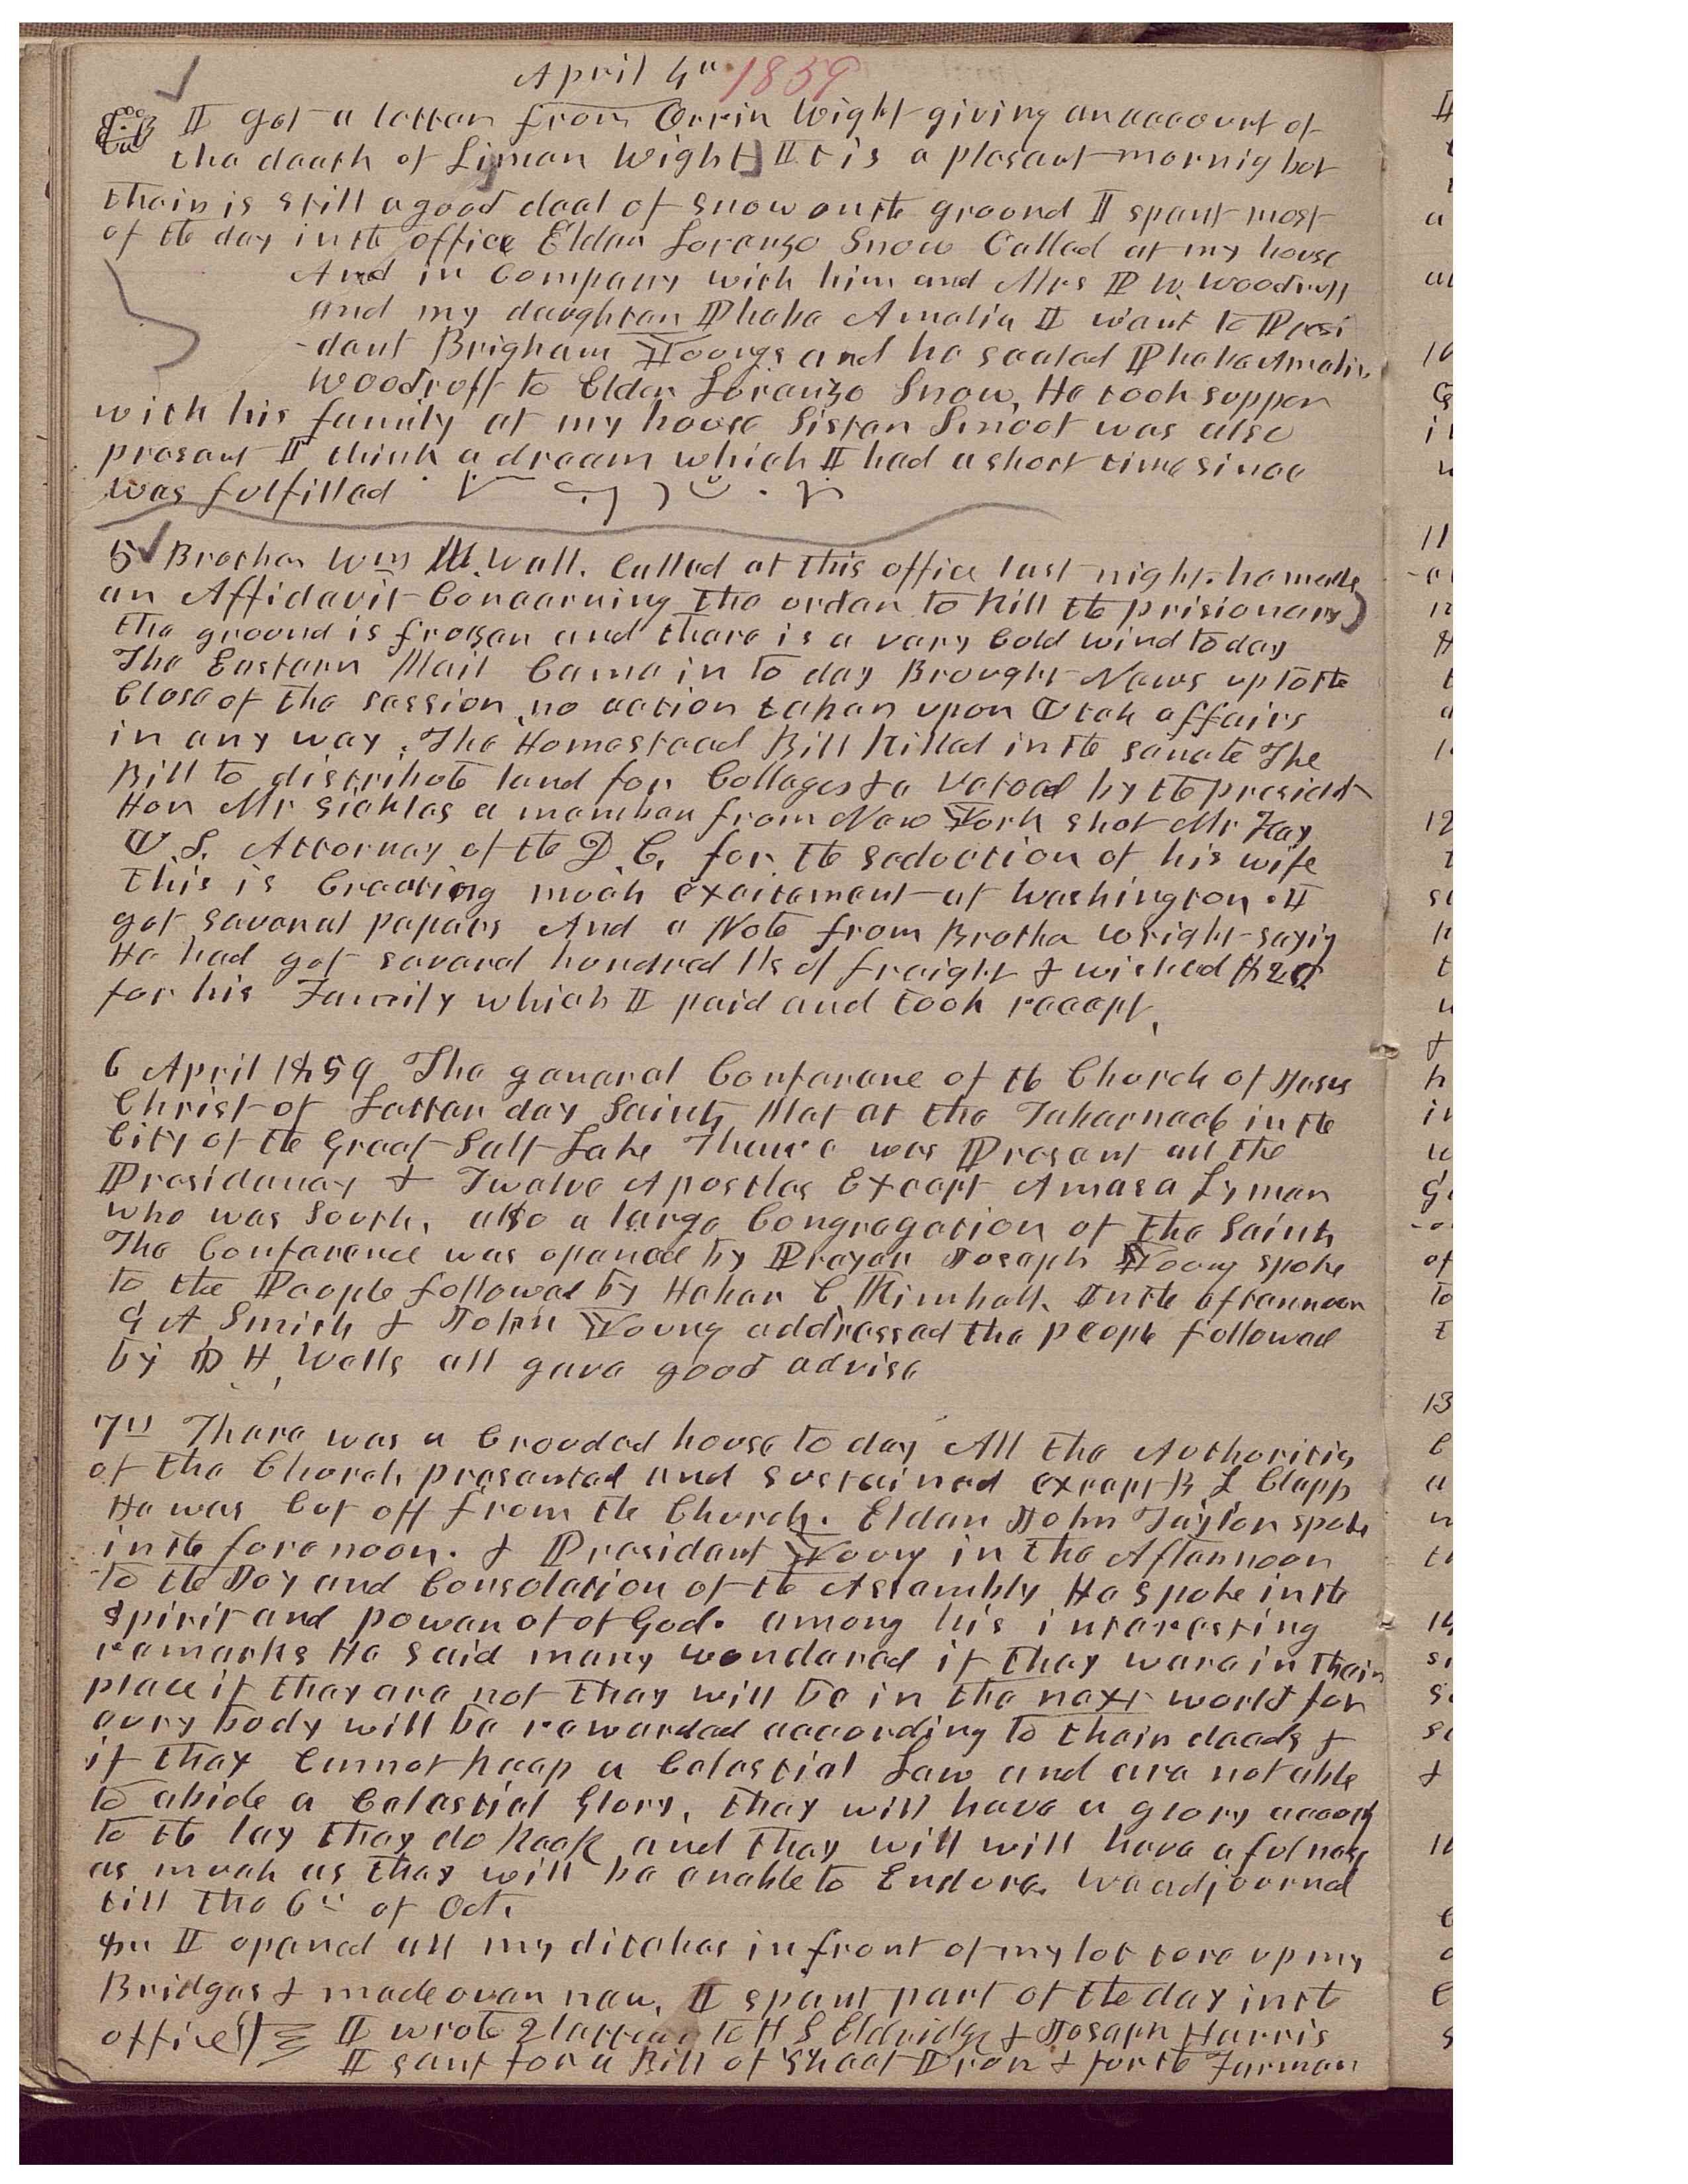 April 4th 1859
I got a letter from Orrin Wight giving an account of
the death of Liman Wight] It is a plesant mornig but
their is still a good deal of snow on the ground I spent most
of the day in the office Elder Lorenzo Snow Called at my house
And in Company with him and Mrs P W. Woodruff
and my daughter Phebe Amelia I went to Presi
-dent Brigham Youngs and he sealed Phebe Amelia
Woodruff to Elder Lorenzo Snow, He took supper
with his family at my house Sister Smoot was also
present I think a dream which I had a short time since
was fulfilled
5 Brother Wm M. Wall. Called at this office last night. he made
an Affidavit Concerning the order to kill the prisioners)
the ground is frozen and there is a very Cold wind to day
The Eastern Mail Came in to day Brought News up to the
Close of the session, no action taken upon Utah affairs
in any way. The Homestead Bill killed in the senate The
Bill to distribute land for Colleges &c vetoed by the president
Hon Mr Sickles a member from New York shot Mr Kay
U S. Attorney of the D. C. for the seduction of his wife
this is Creating much excitement at Washington. I
got several papers And a Note from Brother Wright saying
He had got several hundred lbs of freight & wished $20
for his Family which I paid and took receept.
6 April 1859 The general Conferenc of the Church of Jesus
Christ of Latter day Saints Met at the Tabernacle in the
City of the Great Salt Lake Thare was Present all the
Presidency & Twelve Apostles Except Amasa Lyman
who was South. also a large Congregation of the Saints
The Conference was opened by Prayer Joseph Young spoke
to the People followed by Heber C. Kimball. In the afternoon
G A Smith & John Young addressed the people followed
by D H, Wells all gave good advise
7th There was a Crouded house to day All the Authorities
of the Church presented and sustained except B L Clapp
He was Cut off from the Church. Elder John Taylor spoke
in the forenoon. & President Young in the Afternoon
to the Joy and Consolation of the Assembly He spoke in the
spirit and power of of God. among his interesting
remarks He said many wondered if they ware in their
place if they are not they will be in the next world for
evry body will be rewarded according to their deeds &
if they Cannot keep a Celestial Law and are not able
to abide a Celestial Glory, they will have a glory accordg
to the lay they do keep and they will will have a fulness
as much as they will be enable to Endure. We adjourned
till the 6th of Oct.
8th I opened all my ditches in front of my lot tore up my
Bridges & made over new, I spent part of the day in the
office I wrote 2 letters to H S Eldridge & Joseph Harris
I sent for a Bill of Sheet Iron & for the Farmer